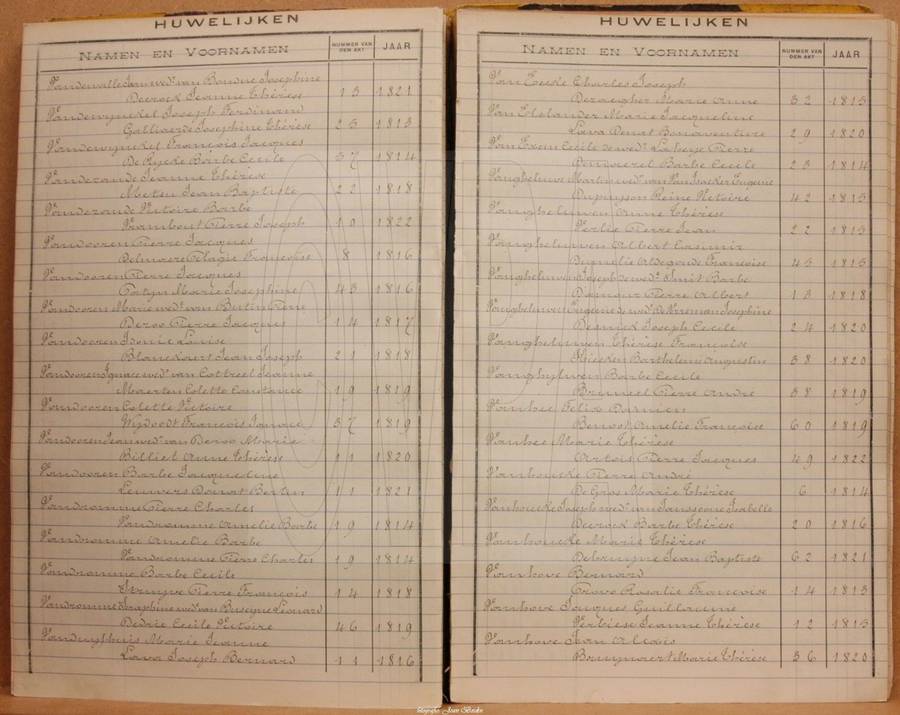 HUWELIJKEN
NAMEN EN VOORNAMEN NUMMER VAN DEN AKT JAAR
Vandewalle Jean wedr van Boudne Josephine
Decrock Jeanne Thérèse 13 1821
Vandewynckel Joseph Ferdinand
Galliaerde Josephine Thérèse 25 1813
Vandewynckel François Jacques
De Rycke Barbe Cecile 37 1814
Vandezande Jeanne Thérèse
Meteu Jean Baptiste 22 1818
Vandezande Victoire Barbe
Pierre Joseph 10 1822
Vandooren Pierre Jacques
Delmaere Pélagie Françoise 8 1816
Vandooren Pierre Jacques
Catryn Marie Josephine 43 1816
Vandooren Marie wede van Butin Pierre
Deroo Pierre Jacques 14 1817
Vandooren Idonie Louise
Blanckaert Jean Joseph 21 1818
Vandooren Ignace wedr van Cottreel Jeanne
Maerten Colette Constance 19 1819
Vandooren Colette Victoire
Wydoodt François Ignace 37 1819
Vandooren Jean wedr van Deroo Marie
Billiet Anne Thérèse 11 1820
Vandooren Barbe Jacqueline
Leuwers Donat Bertin 11 1821
Vandromme Pierre Charles
Vandromme Amelie Barbe 19 1814
Vandromme Amelie Barbe
Vandromme Pierre Charles 19 1814
Vandromme Barbe Cecile
Struyve Pierre François 14 1818
Vandromme Seraphine wede van Buseyne Leonard
Dedrie Cecile Victoire 46 1819
Vanduyfhuis Marie Jeanne
Lava Joseph Bernard 11 1816
HUWELIJKEN
NAMEN EN VOORNAMEN NUMMER VAN DEN AKT JAAR
Van Eecke Charles Joseph
Deraegher Marie Anne 32 1813
Van Elslander Marie Jacqueline
Lava Donat Bonaventure 29 1820
Van Exem Cecile de wede Laheye Pierre
Denvoerel Barbe Cecile 23 1814
Vangheluwe Martin wedr van Van Isacker Eugenie
Dupuyson Reine Victoire 42 1813
Vangheluwen Anne Thérèse
Verlie Pierre Jean 22 1813
Vangheluwen Albert Casimir
Dignelie Aldegonde Françoise 43 1813
Vangheluwen Joseph de wedr Smit Barbe
Pierre Albert 13 1818
Vangheluwen Eugene de wedr Josephine
Desnick Joseph Cecile 24 1820
Vangheluwen Thérèse Françoise
Barthelemi Augustin 38 1820
Vanghyluwen Barbe Cecile
Bruneel Pierre André 38 1819
Vanhee Felix Damien
Benoot Amelie Françoise 60 1819
Vanhee Marie Thérèse
Artois Pierre Jacques 49 1822
Vanhoucke Pierre André
De Gros Marie Thérèse 6 1814
Vanhoucke Joseph wedr van Janssoone Isabelle
Decrock Barbe Thérèse 20 1816
Vanhoucke Marie Thérèse
Debruyne Jean Baptiste 62 1821
Vanhove Bernard
Provo Rosalie Françoise 14 1813
Vanhove Jacques Guillaume
Verbiese Jeanne Thérèse 12 1813
Vanhove Jean Alexis
Bruynaert Marie Thérèse 36 1820